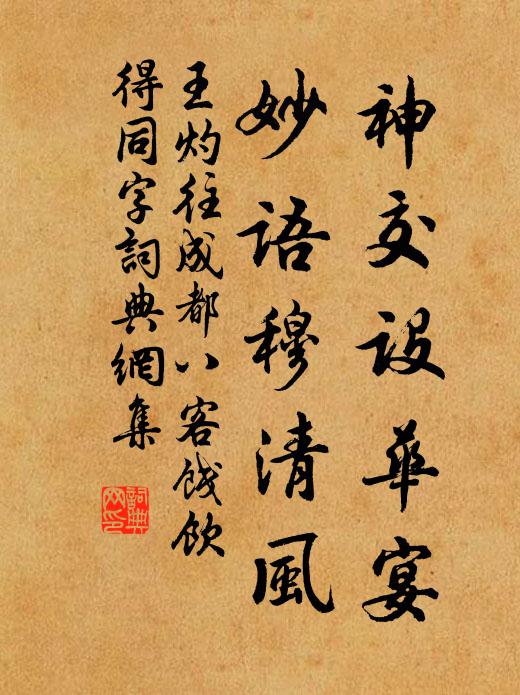 神交设華宴
妙语穆清風
王灼往成都八客餞飲
得同字詞典網集
詞典
网印